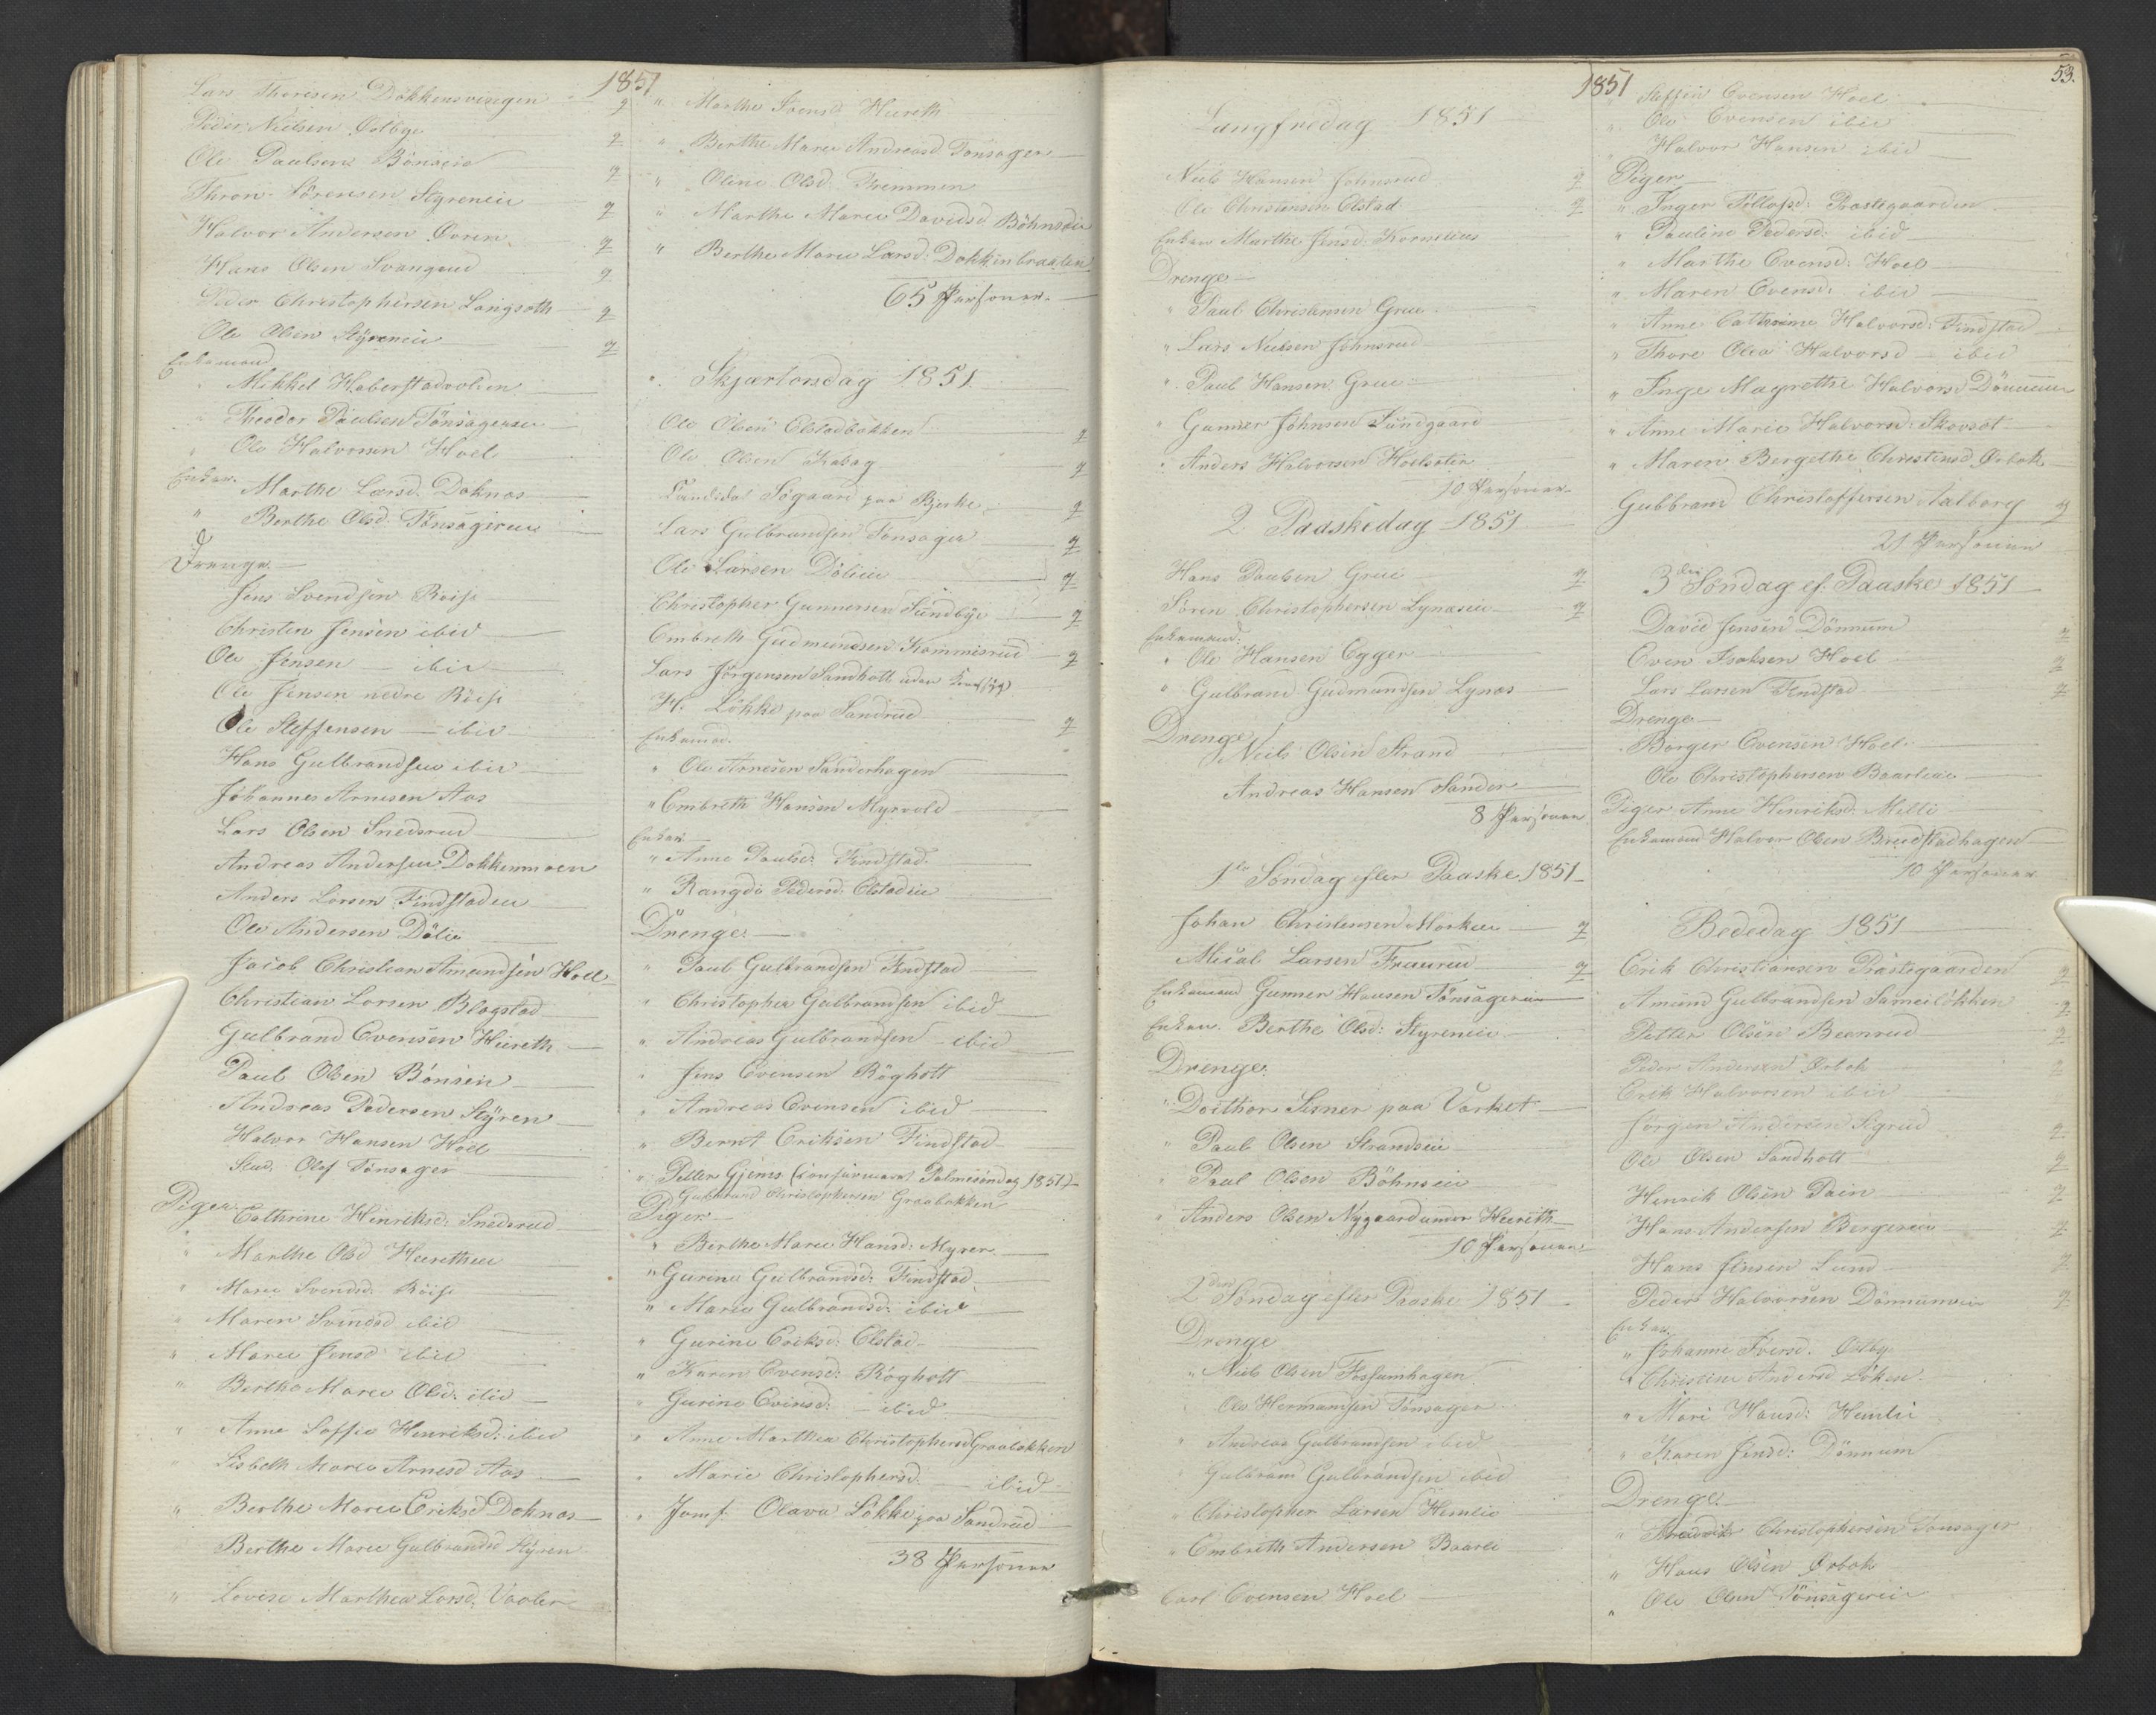 1851
Lars Thoresen Dokkensvingen 2
Peder Nielsen Østbye 2
Ole Paulsen Bönseie 2
Thron Sörensen Styreneie 2
Halvor Andersen Ovren 2
Hans Olsen Svangrud 2
Peder Christophersen Langsæth 2
Ole Olsen Styreneie 2
Enkemænd
" Mikkel Haberstadvolden
" Theodor Paulsen Tönsagereie
" Ole Halvorsen Hoel
Enker. Marthe Larsd. Doknæs
" Berthe Olsd. Tönsagereie
Drenge
Jens Svendsen Röise
Christen Jensen ibid
Ole Jensen - ibid
Ole Jensen nedre Röise
Ole Steffensen - ibid
Hans Gulbrandsen ibid
Johannes Arnesen Aas
Lars Olsen Snedsrud
Andreas Andersen Dokkenmoen
Anders Larsen Findstadeie
Ole Andersen Dölie
Jacob Christian Amundsen Hoel
Christian Larsen Blagstad
Gulbrand Evensen Heereth
Paul Olsen Bönseie
Andreas Pedersen Styren
Halvor Hansen Hoel
Stud. Olaf Tönsager
Piger
Cathrine Henriksd. Snedsrud
" Marthe Olsd Heeretheie
" Maree Svendsd. Röise
" Maren Svendsd ibid
" Maree Jensd ibid
" Berthe Maree Olsd. ibid
" Anne Soffie Henriksd: ibid
" Lisbeth Maree Arnesd Aas
" Berthe Maree Eriksd Doknæs
Berthe Maree Gulbrandsd Styren
" Lovise Marthea Larsd. Vaaler
" Marthe Iversd Heereth
" Berthe Maree Andreasd. Tönsager
" Oline Olsd. Fremmen
" Marthe Maree Davidsd. Böhnseie
" Berthe Maree Larsd: Dokkenbraaten
65 Personer.
Skjærtorsdag 1851
Ole Olsen Elstadbakken 2
Ole Olsen Habag 2
Candidat Sögaard paa Bjerke 2
Lars Gulbrandsen Tönsager 2
Ole Larsen Dölieie 2
Christopher Gunnersen Sundbye 2
Embreth Gudmundsen Kommisrud 2
Lars Jörgensen Sandholt uden
H. Lökke paa Sandrud 2
Enkemænd.
" Ole Arnesen Sanderhagen
" Embreth Hansen Myrvold
Enker
" Anne Paulsd: Findstad
" Rangdi Pedersd. Elstadeie
Drenge
" Paul Gulbrandsen Findstad
" Christopher Gulbrandsen ibid
" Andreas Gulbrandsen - ibid
" Jens Evensen Rögholt
" Andreas Evensen ibid
" Bernt Eriksen Findstad
" Petter Gjems (confirmeret Palmesöndag 1851)
Gulbrand Christophersen Graabakken
Piger
" Berthe Maree Hansd: Myrer
" Gurine Gulbrandsd: Findstad
" Maree Gulbrandsd: ibid
" Gurine Eriksd: Elstad
" Karen Evensd: Rögholt
" Gurine Evensd: - ibid
" Anne Marthea Christophersd Graabakken
" Marie Christophersd. - ibid
" Jomf. Olava Lökke paa Sandrud
38 Personer
1851
53.
Langfredag 1851
Niels Hansen Johnsrud 2
Ole Christensen Elstad 2
Enken Marthe Jensd. Kornelius
Drenge
" Paul Christensen Grue
" Lars Nielsen Johnsrud
" Paul Hansen Grue
" Gunner Johnsen Sundgaard
" Anders Halvorsen Hoelsæter
10 Personer
2 Paaskedag 1851
Hans Paulsen Grue 2
Sören Christophersen Lynæseie 2
Enkemænd.
" Ole Hansen Egger
" Gulbrand Gudmundsen Lynæs
Drenge
Niels Olsen Strand
Andreas Hansen Sander
8 Personer
1ste Söndag efter Paaske 1851
Johan Christensen Morken 2
Micael Larsen Fraurud 2
Enkemand Gunner Hansen Tönsagereie
Enken. Berthe Olsd: Styreneie
Drenge.
" Doithor Sisner paa Værket
" Paul Olsen Strandseie
" Paul Olsen Böhnseie
" Anders Olsen Nygaard under Heereth
10 Personer
2den Söndag efter Paaske 1851
Drenge
" Niels Olsen Fossumhagen
Ole Hermansen Tönsager
" Andreas Gulbrandsen ibid
" Gulbrand Gulbrandsen ibid
" Christopher Larsen Hemlie
" Embreth Andersen Baarli
Carl Evensen Hoel
Steffen Evensen Hoel
" Ole Evensen ibid
Halvor Hansen ibid
Piger
" Inger Tollefsd: Præstegaarden
" Pauline Pedersd: ibid
" Marthe Evensd: Hoel
" Maren Evensd: ibid
" Anne Cathrine Halvorsd: Findstad
" Thore Olea Halvorsd - ibid
" Inge Magrethe Halvorsd Dönnum
" Anne Marie Halvorsd: Skovsæt
" Maren Bergethe Christensd Ørbæk
Gulbrand Christoffersen Aalborg 2
21 Personer
3die Söndag ef. Paaske 1851
David Jensen Dönnum 2
Even Isaksen Hoel 2
Lars Larsen Findstad 2
Drenge
Börger Evensen Hoel
Ole Christophersen Baarlieie
Piger Anne Henriksd: Melli
Enkemand Halvor Olsen Brædstadhagen
10 Personer
Bededag 1851
Erik Christiansen Præstegaarden 2
Amund Gulbrandsen Sameilökken 2
Petter Olsen Beenrud 2
Peder Andersen Ørbæk 2
Erik Halvorsen ibid
Jörgen Andersen Sigrud 2
Ole Olsen Sandholt 2
Henrik Olsen Pain 2
Hans Andersen Bergereie 2
Hans Jensen Lund 2
Peder Halvorsen Dönnumeie 2
Enker
" Johanne Iversd. Østby
" Christine Andersd Löken
" Mari Hansd: Hemlie
" Karen Jensd: Dönnum
Drenge
" Fredrik Christophersen Tönsager
" Hans Olsen Ørbæk
" Ole Olsen Tönsagereie